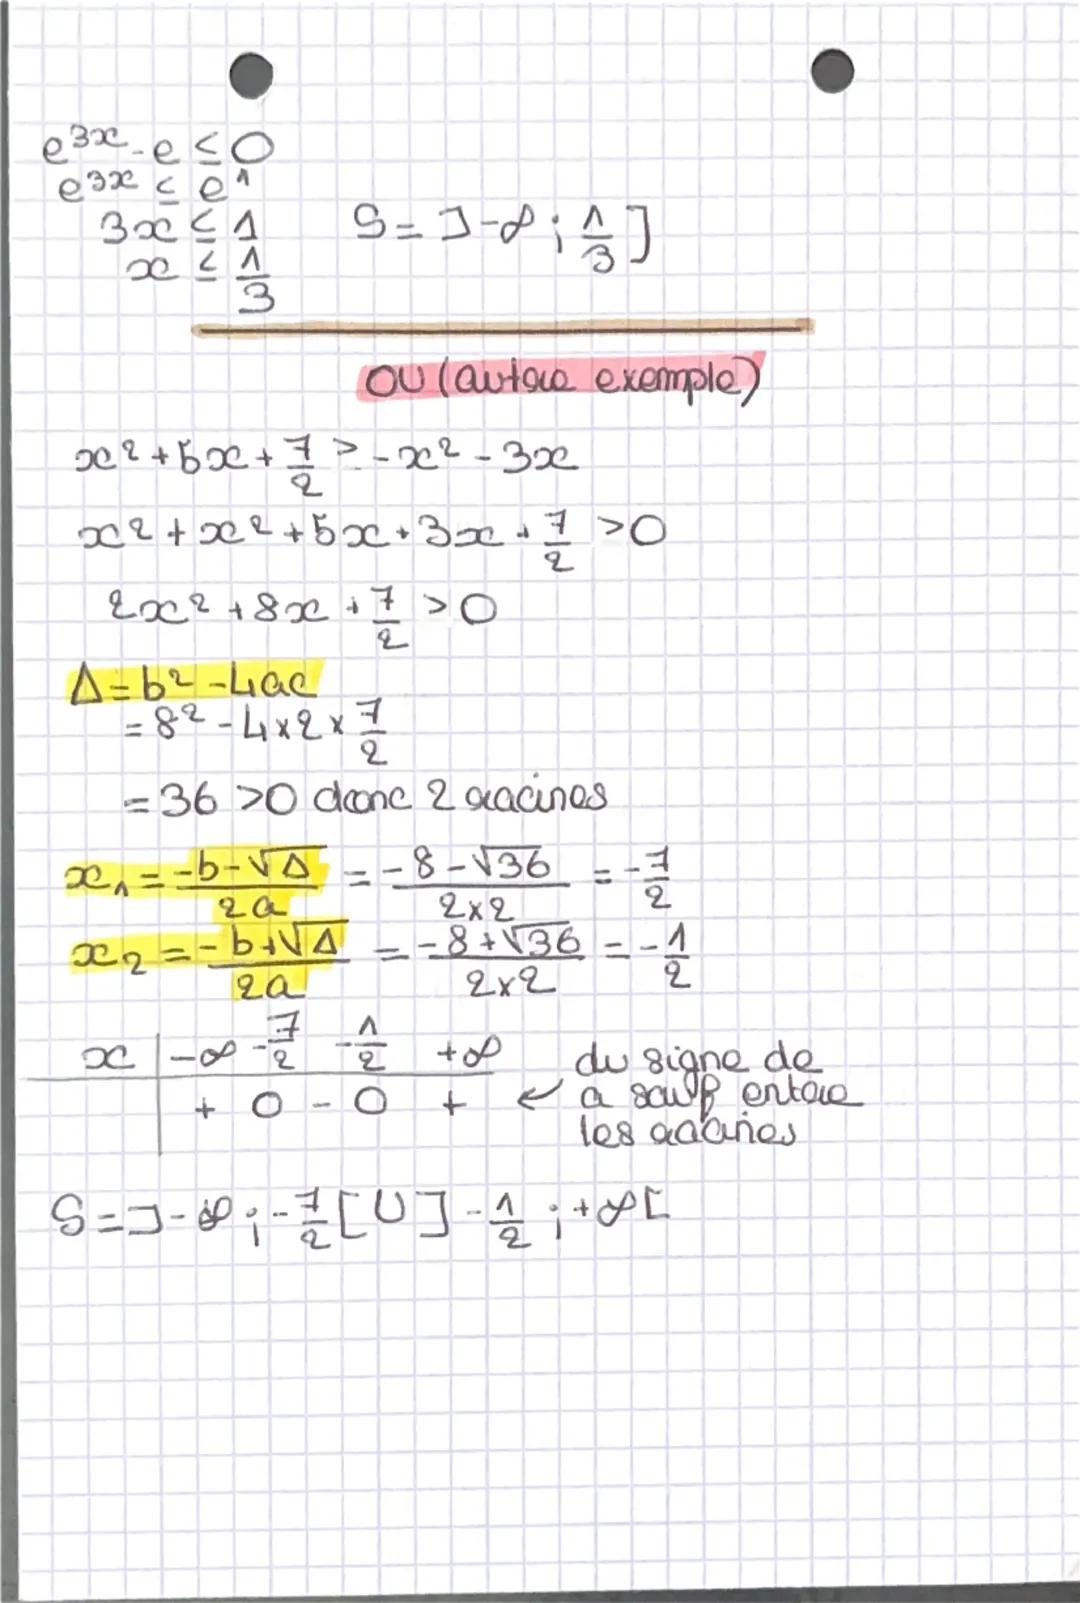 e^{3x} - e ≤ 0
e^{3x} ≤ e^1
3x ≤ 1
x ≤ 1/3
S = ]-∞ ; 1/3]
OU (autre exemple)
x² + 5x + 7/2 > -x² - 3x
x² + x² + 5x + 3x + 7/2 > 0
2x² + 8x + 7/2 > 0
Δ = b² - 4ac
= 8² - 4×2×7/2
= 36 > 0 donc 2 racines
x₁ = (-b-√Δ)/2a = (-8-√36)/(2×2) = -7/2
x₂ = (-b+√Δ)/2a = (-8+√36)/(2×2) = -1/2
x | -∞ -7/2 -1/2 +∞
+ 0 - 0 + ←
du signe de
a sauf entre
les racines
S = ]-∞ ; -7/2[ U ]-1/2 ; +∞[